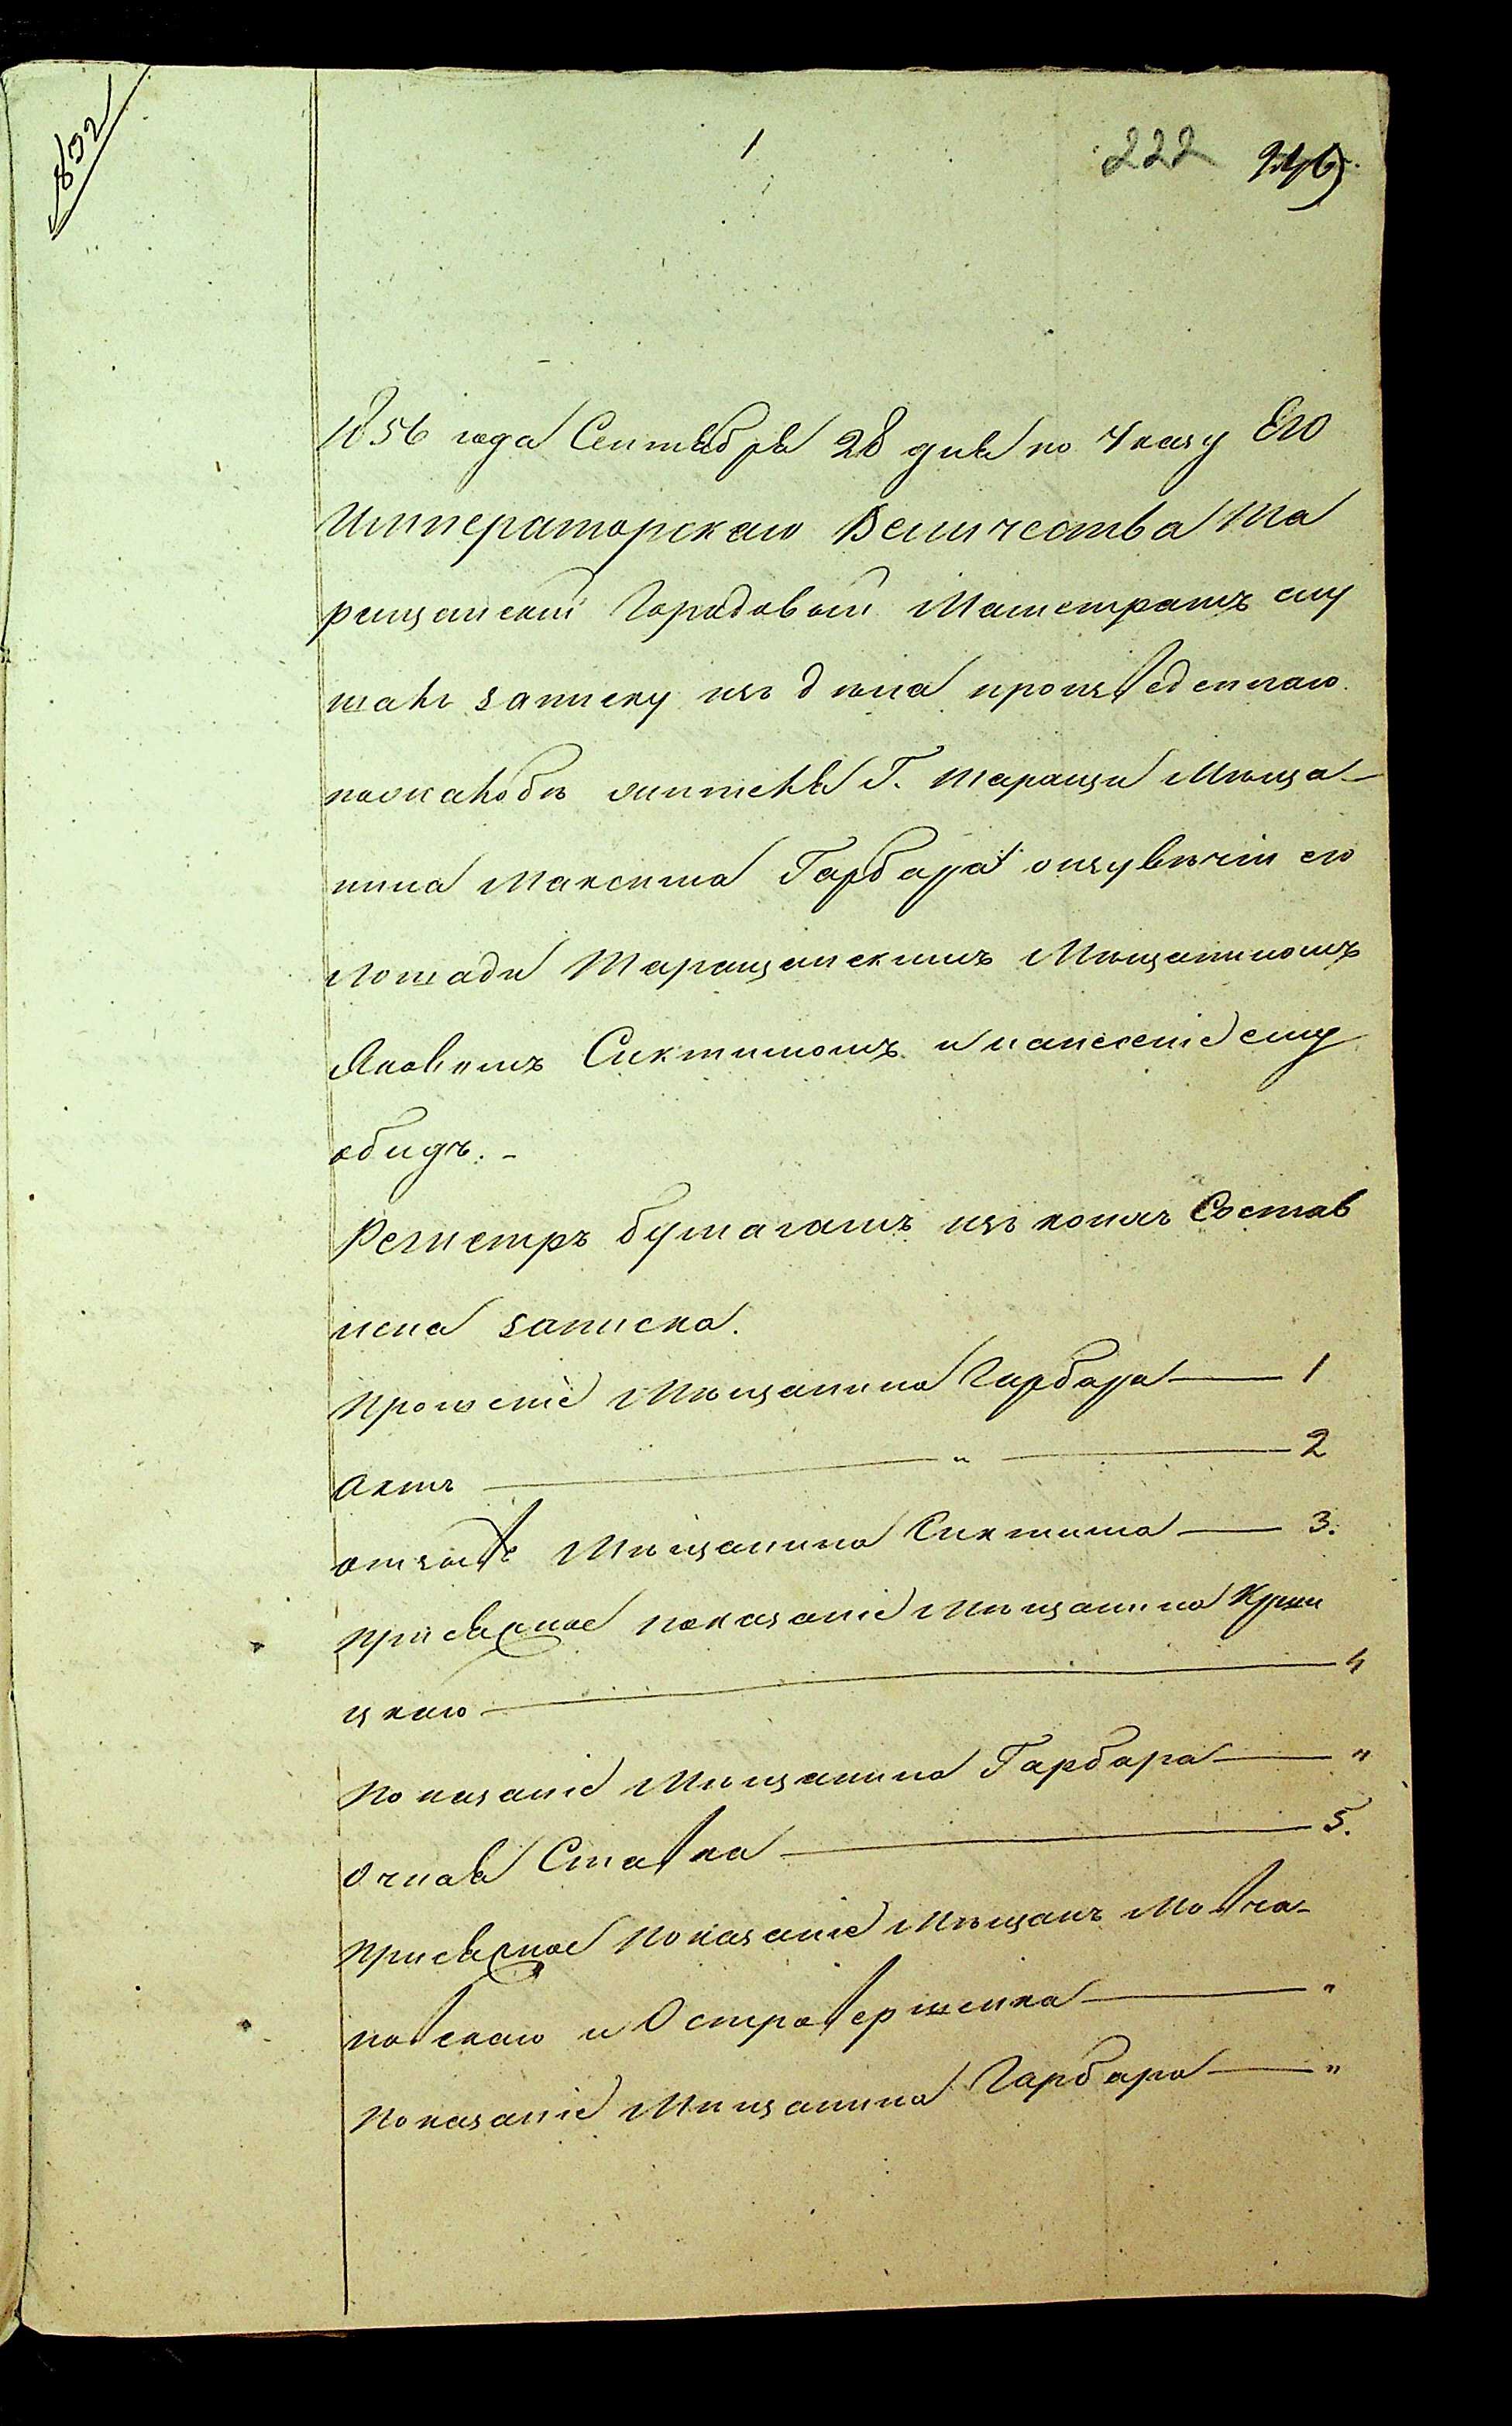 892
1
222
1856 года Сентября 28 дня по Указу Его
Императорскаго Величества Та
ращанскій Городовый Магистратъ слу
шалъ записку изъ дѣла произведеннаго
пожалобѣ жителя Г. Таращи Мѣща-
нина Максима Гарбара оизувѣчіи его
лошади Таращанскимъ Мѣщаниномъ
Яковомъ Сиктимомъ и нанесеніе ему
обидъ. -
Регистръ бумагамъ изъ коихъ Состав
лена записка.
Прошеніе Мѣщанина Гарбара — 1
Актъ — „ — 2
отзывъ Мѣщанина Сиктима — 3.
Присяжное показаніе Мѣщанина
цкаго — 4
Показаніе Мѣщанина Гарбара — „
Очная Ставка — 5.
Присяжное Показаніе Мѣщанъ Молча-
новскаго и Островершенка — „
Показаніе Мѣщанина Гарбара — „